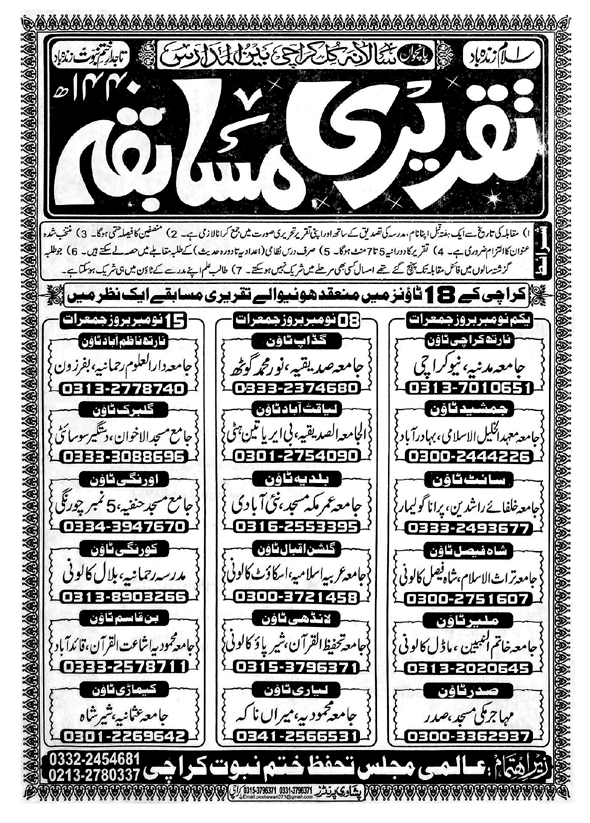 اسلام زندہ باد
پانچواں سالانہ کل کراچی بین المدارس
تاجدار ختم نبوت زندہ باد
تقریری مسابقہ
۱۴۴۰ھ
شرائط
1) مقابلہ کی تاریخ سے ایک ہفتہ قبل اپنا نام، مدرسہ کی تصدیق کے ساتھ اور اپنی تقریر تحریری صورت میں جمع کرانا لازمی ہے۔ 2) منصفین کا فیصلہ حتمی ہوگا۔ 3) منتخب شدہ
عنوان کا التزام ضروری ہے۔ 4) تقریر کا دورانیہ 5 تا 7 منٹ ہوگا۔ 5) صرف درس نظامی (اعدادیہ تا دورہ حدیث) کے طلبہ مقابلے میں حصہ لے سکتے ہیں۔ 6) جو طلبہ
گزشتہ سالوں میں فائنل مقابلہ تک پہنچ گئے تھے امسال کسی بھی مرحلے میں شریک نہیں ہوسکتے۔ 7) طالب علم اپنے مدرسے کے ٹاؤن میں ہی شریک ہوسکتا ہے۔
کراچی کے 18 ٹاؤنز میں منعقد ہونیوالے تقریری مسابقے ایک نظر میں
یکم نومبر بروز جمعرات
نارتھ کراچی ٹاؤن
جامعہ مدنیہ، نیو کراچی
0313-7010651
جمشید ٹاؤن
جامعہ معہد الخلیل الاسلامی، بہادر آباد
0300-2444226
سائٹ ٹاؤن
جامعہ خلفائے راشدین، پرانا گولیمار
0333-2493677
شاہ فیصل ٹاؤن
جامعہ تراث الاسلام، شاہ فیصل کالونی
0300-2751607
ملیر ٹاؤن
جامعہ خاتم النبیین، ماڈل کالونی
0313-2020645
صدر ٹاؤن
مہاجر مکی مسجد، صدر
0300-3362937
08 نومبر بروز جمعرات
گڈاپ ٹاؤن
جامعہ صدیقیہ، نور محمد گوٹھ
0333-2374680
لیاقت آباد ٹاؤن
الجامعہ الصدیقیہ، بی ایریا تین ہٹی
0301-2754090
بلدیہ ٹاؤن
جامعہ عمر مکہ مسجد، نئی آبادی
0316-2553395
گلشن اقبال ٹاؤن
جامعہ عربیہ اسلامیہ، اسکاؤٹ کالونی
0300-3721458
لانڈھی ٹاؤن
جامعہ تحفیظ القرآن، شیر پاؤ کالونی
0315-3796371
لیاری ٹاؤن
جامعہ محمودیہ، میراں ناکہ
0341-2566531
15 نومبر بروز جمعرات
نارتھ ناظم آباد ٹاؤن
جامعہ دارالعلوم رحمانیہ، بفرزون
0313-2778740
گلبرگ ٹاؤن
جامع مسجد الاخوان، دستگیر سوسائٹی
0333-3088696
اورنگی ٹاؤن
جامع مسجد حنفیہ، 5 نمبر چورنگی
0334-3947670
کورنگی ٹاؤن
مدرسہ رحمانیہ، بلال کالونی
0313-8903266
بن قاسم ٹاؤن
جامعہ محمودیہ اشاعت القرآن، قائد آباد
0333-2578711
کیماڑی ٹاؤن
جامعہ عثمانیہ، شیر شاہ
0301-2269642
زیر اہتمام: عالمی مجلس تحفظ ختم نبوت کراچی
0332-2454681
0213-2780337
پشاوری پرنٹرز کراچی 0315-3796371 0331-3796371
Email: peshawari371@gmail.com